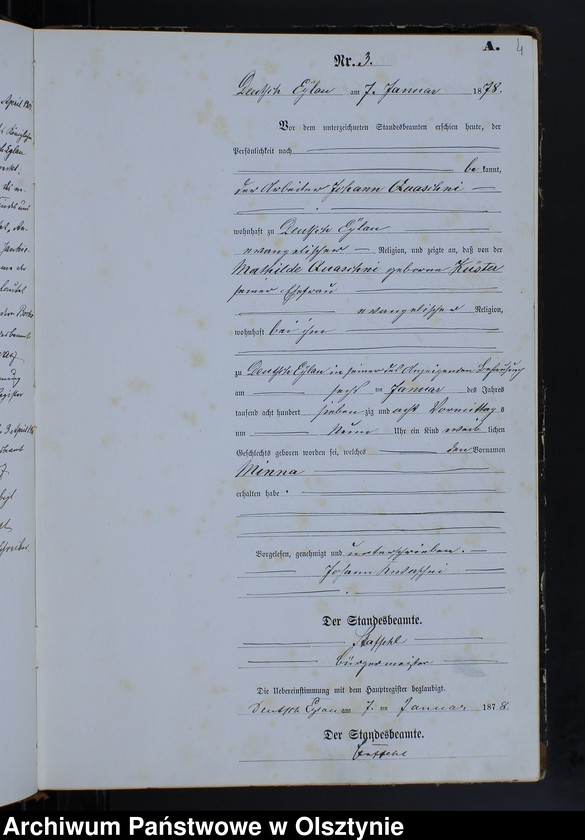 A.
4
Nr. 3.
Deutsch Eylau am 7. Januar 1878.
Vor dem unterzeichneten Standesbeamten erschien heute, der
Persönlichkeit nach
be kannt,
der Arbeiter Johann Quaschni
wohnhaft zu Deutsch Eylau
evangelischer Religion, und zeigte an, daß von der
Mathilde Quaschni geborne Küster
seiner Ehefrau
evangelischer Religion,
wohnhaft bei ihm
zu Deutsch Eylau in seiner des Anzeigenden Behausung
am sechs ten Januar des Jahres
tausend acht hundert sieben zig und acht Vormittags
um Neun Uhr ein Kind weib lichen
Geschlechts geboren worden sei, welches den Vornamen
Minna
erhalten habe.
Vorgelesen, genehmigt und unterschrieben.
Johann
Der Standesbeamte.
Bürgermeister
Die Uebereinstimmung mit dem Hauptregister beglaubigt.
Deutsch Eylau am 7. ten Januar 1878.
Der Standesbeamte.
Archiwum Państwowe w Olsztynie